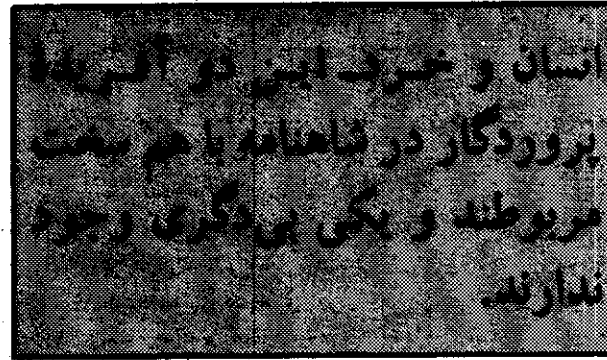 انسان و خرد، این دو آفریدهٔ
پروردگار در شاهنامه با هم سخت
مربوطند و یکی بی‌دگری وجود
ندارند.